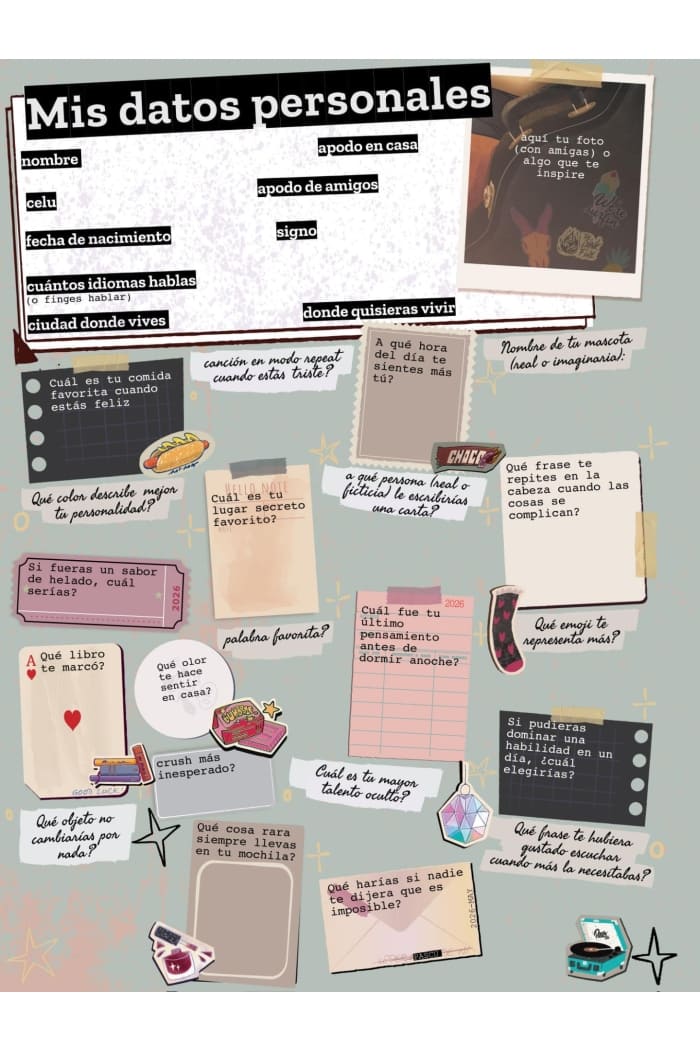 Mis datos personales
nombre
apodo en casa
celu
apodo de amigos
fecha de nacimiento
signo
cuántos idiomas hablas
(o finges hablar)
donde quisieras vivir
ciudad donde vives
aquí tu foto
(con amigas) o
algo que te
inspire
Cuál es tu comida
favorita cuando
estás feliz
canción en modo repeat
cuando estás triste?
A qué hora
del día te
sientes más
tú?
Nombre de tu mascota
(real o imaginaria):
CHOCO
Qué color describe mejor
tu personalidad?
HELLO NOTE
Cuál es tu
lugar secreto
favorito?
a qué persona (real o
ficticia) le escribirías
una carta?
Qué frase te
repites en la
cabeza cuando las
cosas se
complican?
Si fueras un sabor
de helado, cuál
serías?
2026
palabra favorita?
2026
Cuál fue tu
último
pensamiento
antes de
dormir anoche?
Qué emoji te
representa más?
A
Qué libro
te marcó?
GOOD LUCK
Qué olor
te hace
sentir
en casa?
crush más
inesperado?
Cuál es tu mayor
talento oculto?
Si pudieras
dominar una
habilidad en un
día, ¿cuál
elegirías?
Qué objeto no
cambiarías por
nada?
Qué cosa rara
siempre llevas
en tu mochila?
Qué harías si nadie
te dijera que es
imposible?
2026-MAY
PASCU
Qué frase te hubiera
gustado escuchar
cuando más la necesitabas?